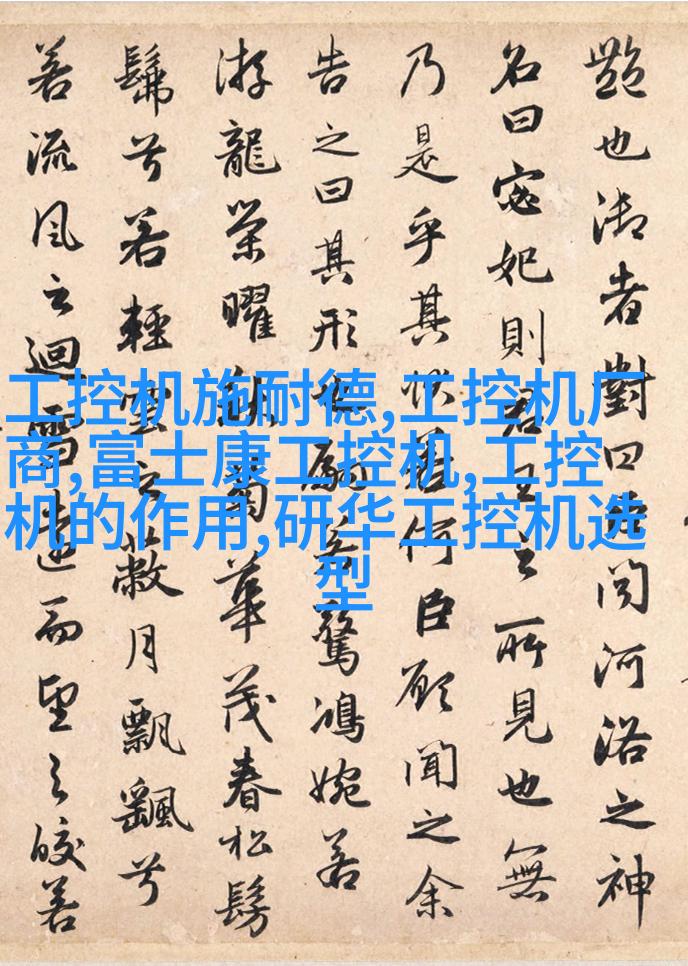 艷也御者對曰臣聞河洛之神
名曰宓妃則君王之所見也無
乃是乎其狀若何臣願聞之余
告之曰其形也翩若驚鴻婉若
游龍榮曜秋菊華茂春松髣
髴兮若輕雲之蔽月飄颻兮
若流風之迴雪遠而望之皎若
工控机施耐德,工控机厂
商,富士康工控机,工控
机的作用,研华工控机选
型